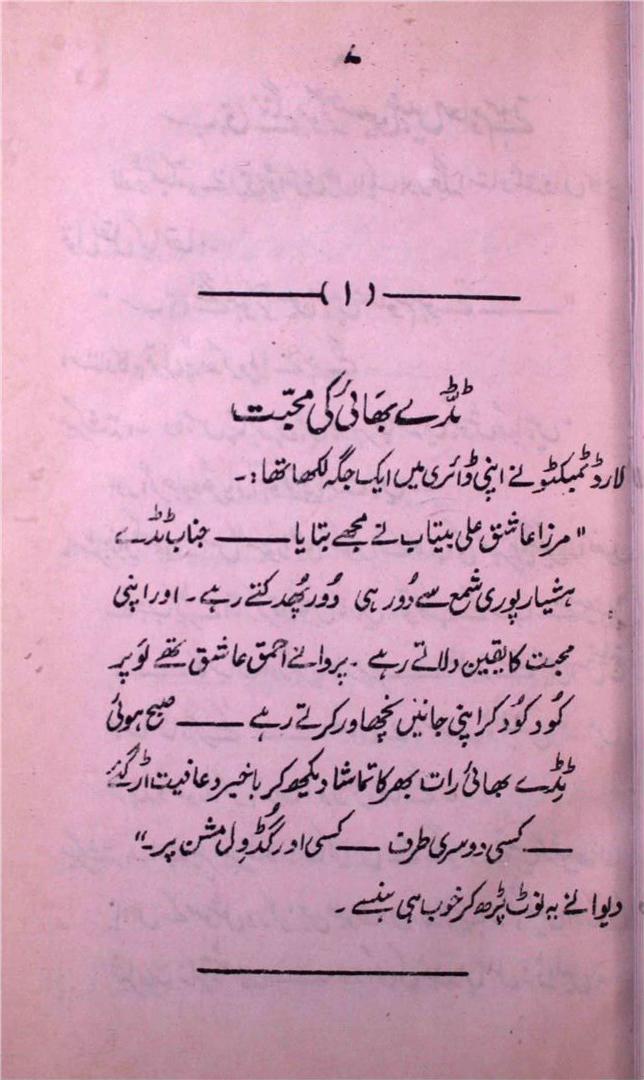 ۸
(۱)
ٹڈّے بھائی کی محبّت
لارڈ ٹمبکٹو نے اپنی ڈائری میں ایک جگہ لکھا تھا:۔
"مرزا عاشق علی بیتاب نے مجھے بتایا —— جناب ٹڈے
ہشیارپوری شمع سے دُور ہی دُور پُھدکتے رہے۔ اور اپنی
محبت کا یقین دلاتے رہے۔ پروانے احمق عاشق تھے لَو پر
کُود کُود کر اپنی جانیں نچھاور کرتے رہے —— صبح ہوئی
ٹِڈے بھائی رات بھر کا تماشا دیکھ کر باخیر و عافیت اڑ گئے
—— کسی دوسری طرف —— کسی اور گُڈوِل مشن پر۔"
دیوانے یہ نوٹ پڑھ کر خوب ہی ہنسے۔